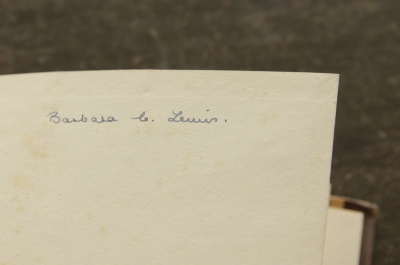 Barbara C. Lewis.